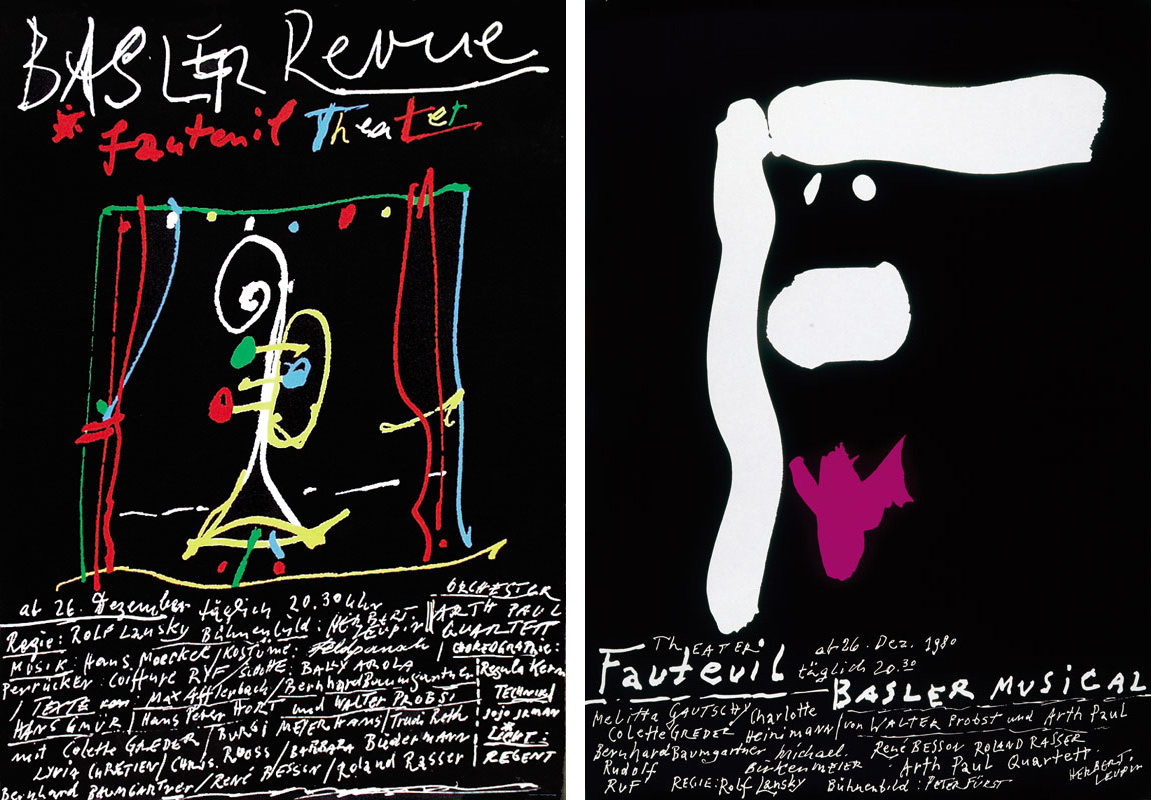 BASLER Revue
* fauteuil Theater
ab 26. Dezember täglich 20.30 Uhr
Regie: Rolf Lansky Bühnenbild: HERBERT LEUPIN
MUSIK: Hans Moeckel / Kostüme:
Perrücken: Coiffure RYF / BALLY AROLA
/ TEXTE von: MAX Afflerbach / Bernhard Baumgartner
HANS GMÜR / Hans Peter HORT und WALTER PROBST
mit Colette GREDER / BURGI MEIER HANS / Trudi Roth
LYVIA CHRETIEN / CHRIS. ROOSS / BARBARA BüdeRMANN
Bernhard BAUMGARTNER / RENÉ BESSON / Roland Rasser
ORCHESTER
ARTH PAUL
QUARTETT
CHOREOGRAPHIE:
Regula Kern
TECHNIK
LICHT:
REGENT
ThEATER:
Fauteuil
ab 26. Dez. 1980
täglich 20.30
BASLER MUSICAL
Melitta GAUTSCHY / Charlotte
Colette GREDER Heinimann / von WALTER Probst und Arth Paul
Bernhard Baumgartner Michael RENÉ BESSON ROLAND RASSER
Rudolf BIRKENMEIER Arth Paul Quartett
RUF REGIE: Rolf Lansky Bühnenbild: PETER FÜRST
HERBERT LEUPIN